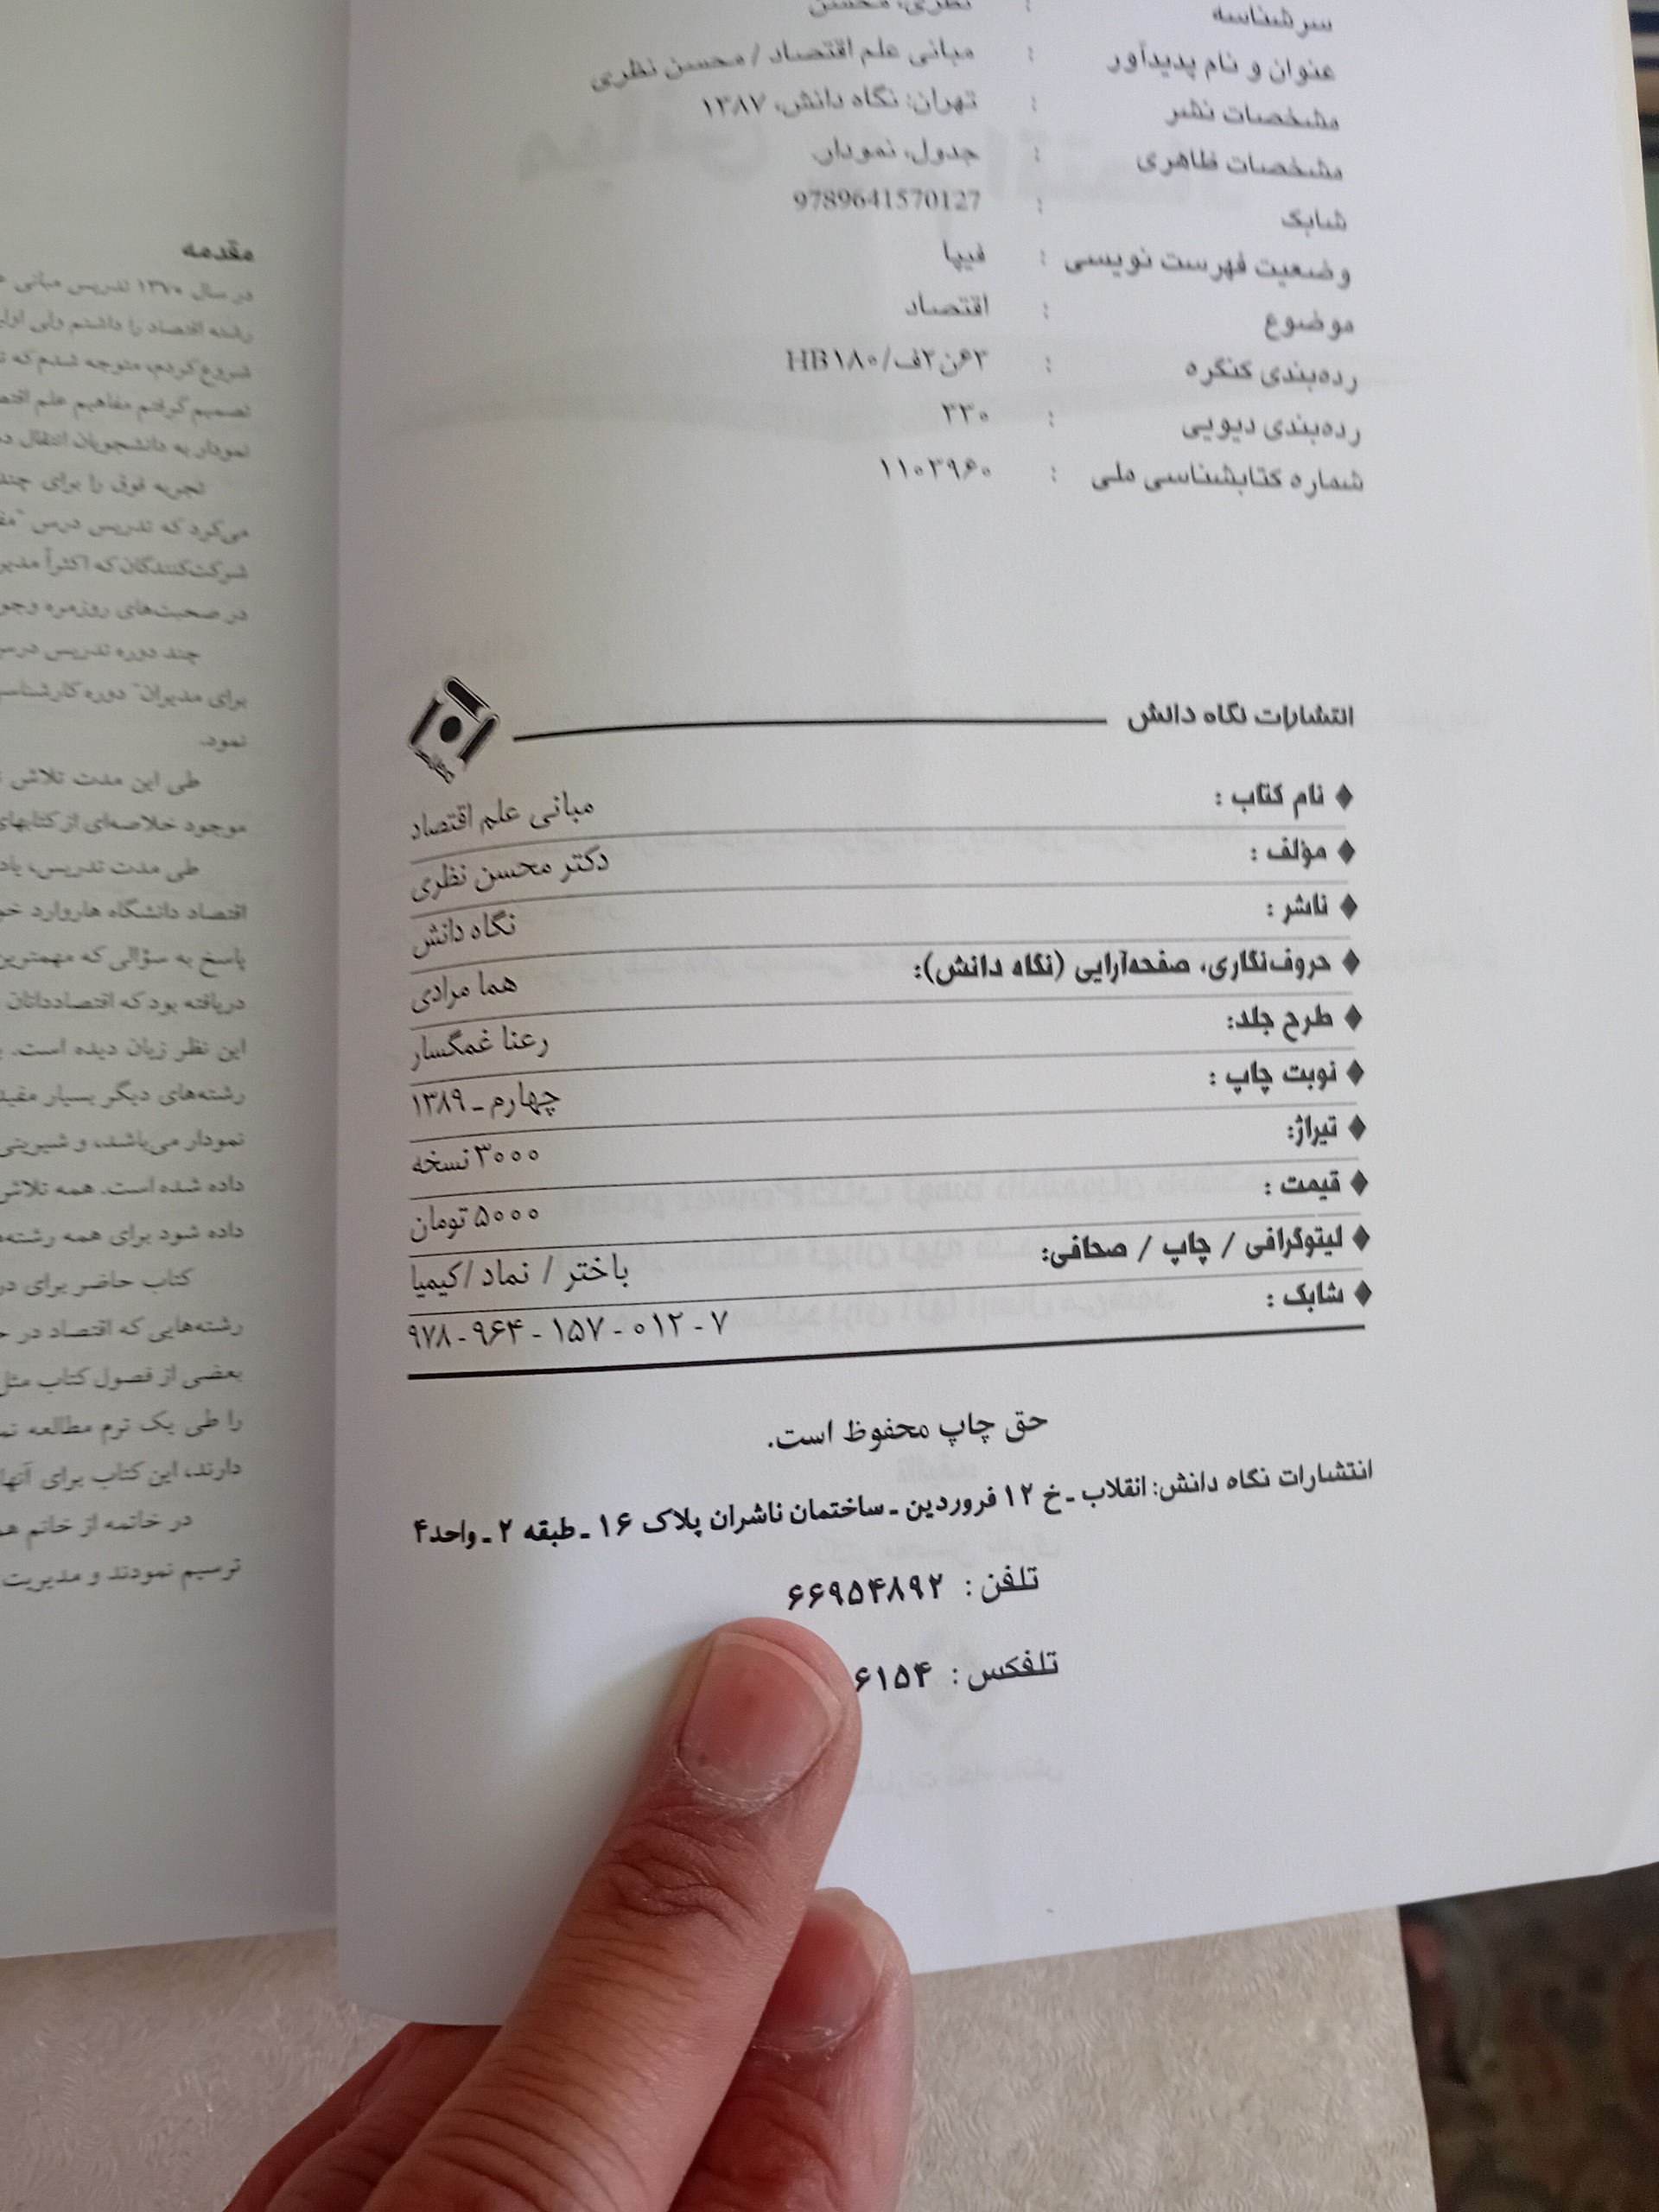 سرشناسه : نظری، محسن
عنوان و نام پدیدآور : مبانی علم اقتصاد / محسن نظری
مشخصات نشر : تهران: نگاه دانش، ۱۳۸۷
مشخصات ظاهری : جدول، نمودار.
شابک : 9789641570127
وضعیت فهرست نویسی : فیپا
موضوع : اقتصاد
رده‌بندی کنگره : HB۱۸۰/ف۲ن۶۳
رده‌بندی دیویی : ۳۳۰
شماره کتابشناسی ملی : ۱۱۰۳۹۶۰
انتشارات نگاه دانش
♦ نام کتاب : مبانی علم اقتصاد
♦ مؤلف : دکتر محسن نظری
♦ ناشر : نگاه دانش
♦ حروف‌نگاری، صفحه‌آرایی (نگاه دانش): هما مرادی
♦ طرح جلد: رعنا غمگسار
♦ نوبت چاپ : چهارم ـ ۱۳۸۹
♦ تیراژ: ۳۰۰۰ نسخه
♦ قیمت : ۵۰۰۰ تومان
♦ لیتوگرافی / چاپ / صحافی: باختر / نماد /کیمیا
♦ شابک : ۹۷۸ - ۹۶۴ - ۱۵۷ - ۰۱۲ - ۷
حق چاپ محفوظ است.
انتشارات نگاه دانش: انقلاب ـ خ ۱۲ فروردین ـ ساختمان ناشران پلاک ۱۶ ـ طبقه ۲ ـ واحد۴
تلفن : ۶۶۹۵۴۸۹۲
تلفکس : ۶۱۵۴
مقدمه
در سال ۱۳۷۰ تدریس مبانی
رشته اقتصاد را داشتم ولی
شروع کردم، متوجه شدم که
تصمیم گرفتم مفاهیم علم
نمودار به دانشجویان انتقال
تجربه فوق را برای چند
می‌کرد که تدریس درس
شرکت‌کنندگان که اکثراً
در صحبت‌های روزمره
چند دوره تدریس
برای مدیران" دوره
نمود.
طی این مدت تلاش
موجود خلاصه‌ای از
طی مدت تدریس،
اقتصاد دانشگاه هاروارد
پاسخ به سؤالی که مهمترین
دریافته بود که اقتصاددانان
این نظر زیان دیده است.
رشته‌های دیگر بسیار
نمودار می‌باشد، و شیرینی
داده شده است. همه
داده شود برای همه
کتاب حاضر برای
رشته‌هایی که اقتصاد در
بعضی از فصول کتاب مثل
را طی یک ترم مطالعه
دارند، این کتاب برای آنها
در خاتمه از خانم
ترسیم نمودند و مدیریت